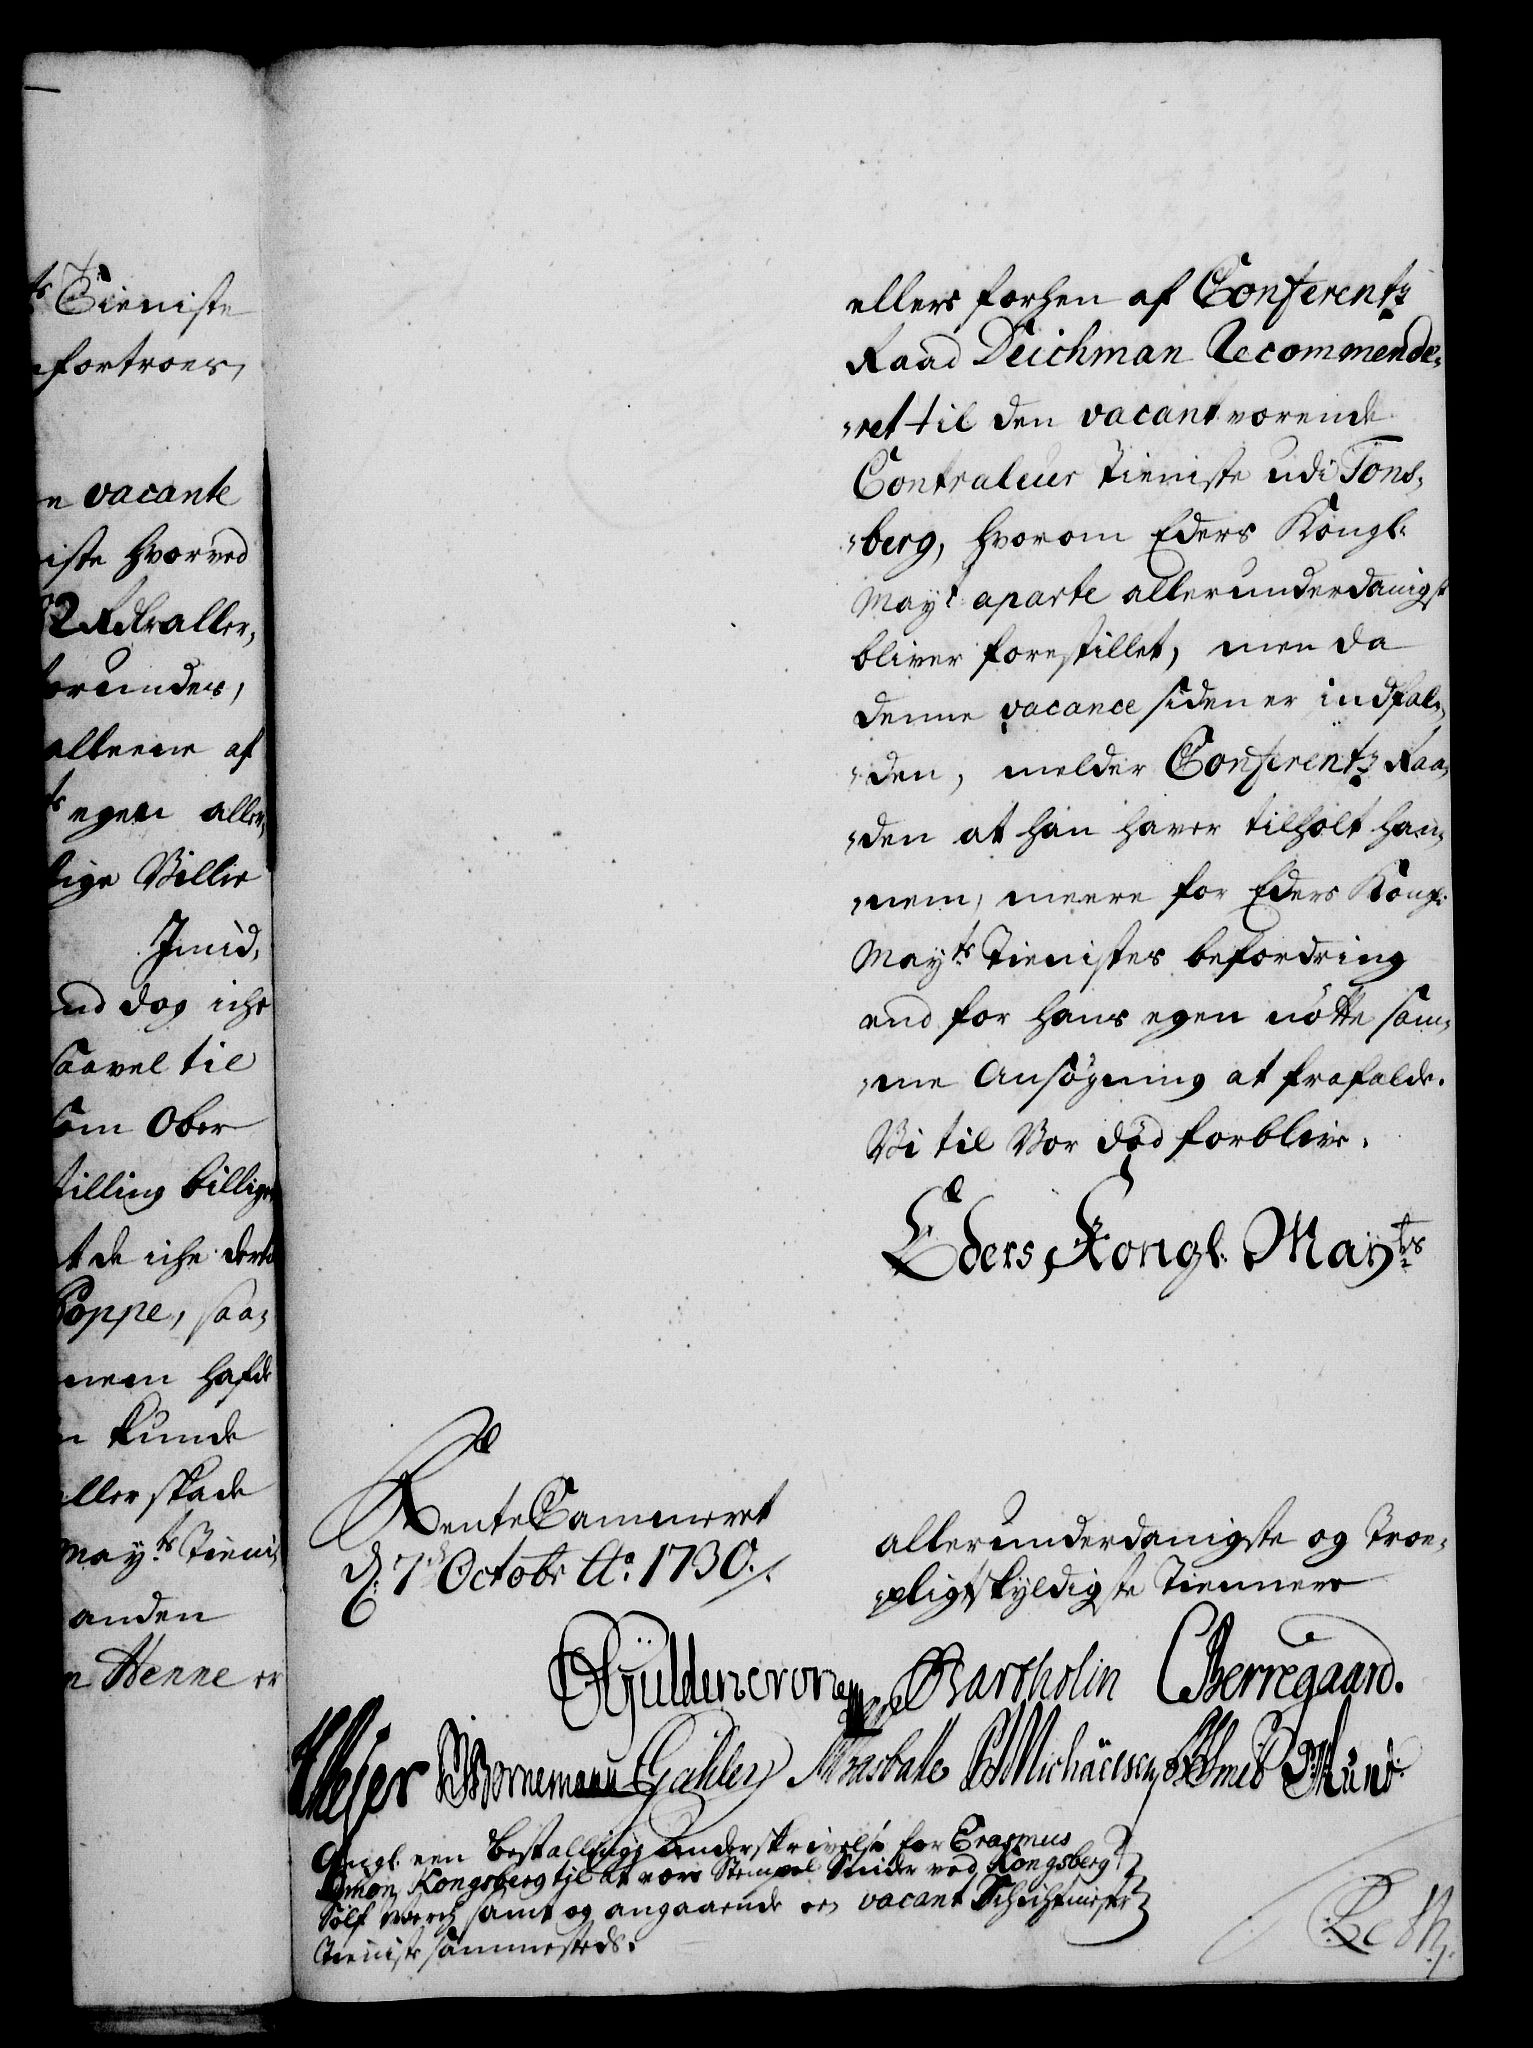 ts Tieniste
fortroes,
n vacante
iste hvorved
52 Rdlr aller,
grundes,
alleene af
ts egen aller,
ige Villie
Imid,
nd dog iche
saavel til
som Ober
tilling billiges
t de iche derti
Poppe, saa,
nem hafde
n kunde
eller skade
Mayts Tieni,
anden
n Henne er
ellers forhen af Conferentz
Raad Deichman Recommende,
,ret til den vacant værende
Contraleur Tieniste udi Tons,
,berg, hvorom Eders Kongl:
Mayt: aparte allerunderdanigst
bliver forestillet, men da
denne vacance siden er indfal,
,den, melder Conferentz Raa,
,den at han haver tilholt han,
,nem, meere for Eders Kongl:
Mayts Tienistes befordring
end for hans egen nøtte sam,
,me Ansøgning at frafalde.
Vi til Vor død forblive.
Eders Kongl. Mayts
RenteCammeret
d: 7de Octobr Ao. 1730.
allerunderdanigste og Troe,
pligtskyldigste Tiennere
Güldencrone Bartholin CBerregaard.
Bornemann Gähler Michäelsen Mund.
Angl. een Bestallings underskrivelse for Erasmus
Simon Kongsberg til at være Stempel Snider ved Kongsberg
Sølf Werch samt og angaaende en vacant Schichtmester
Tieniste sammesteds.